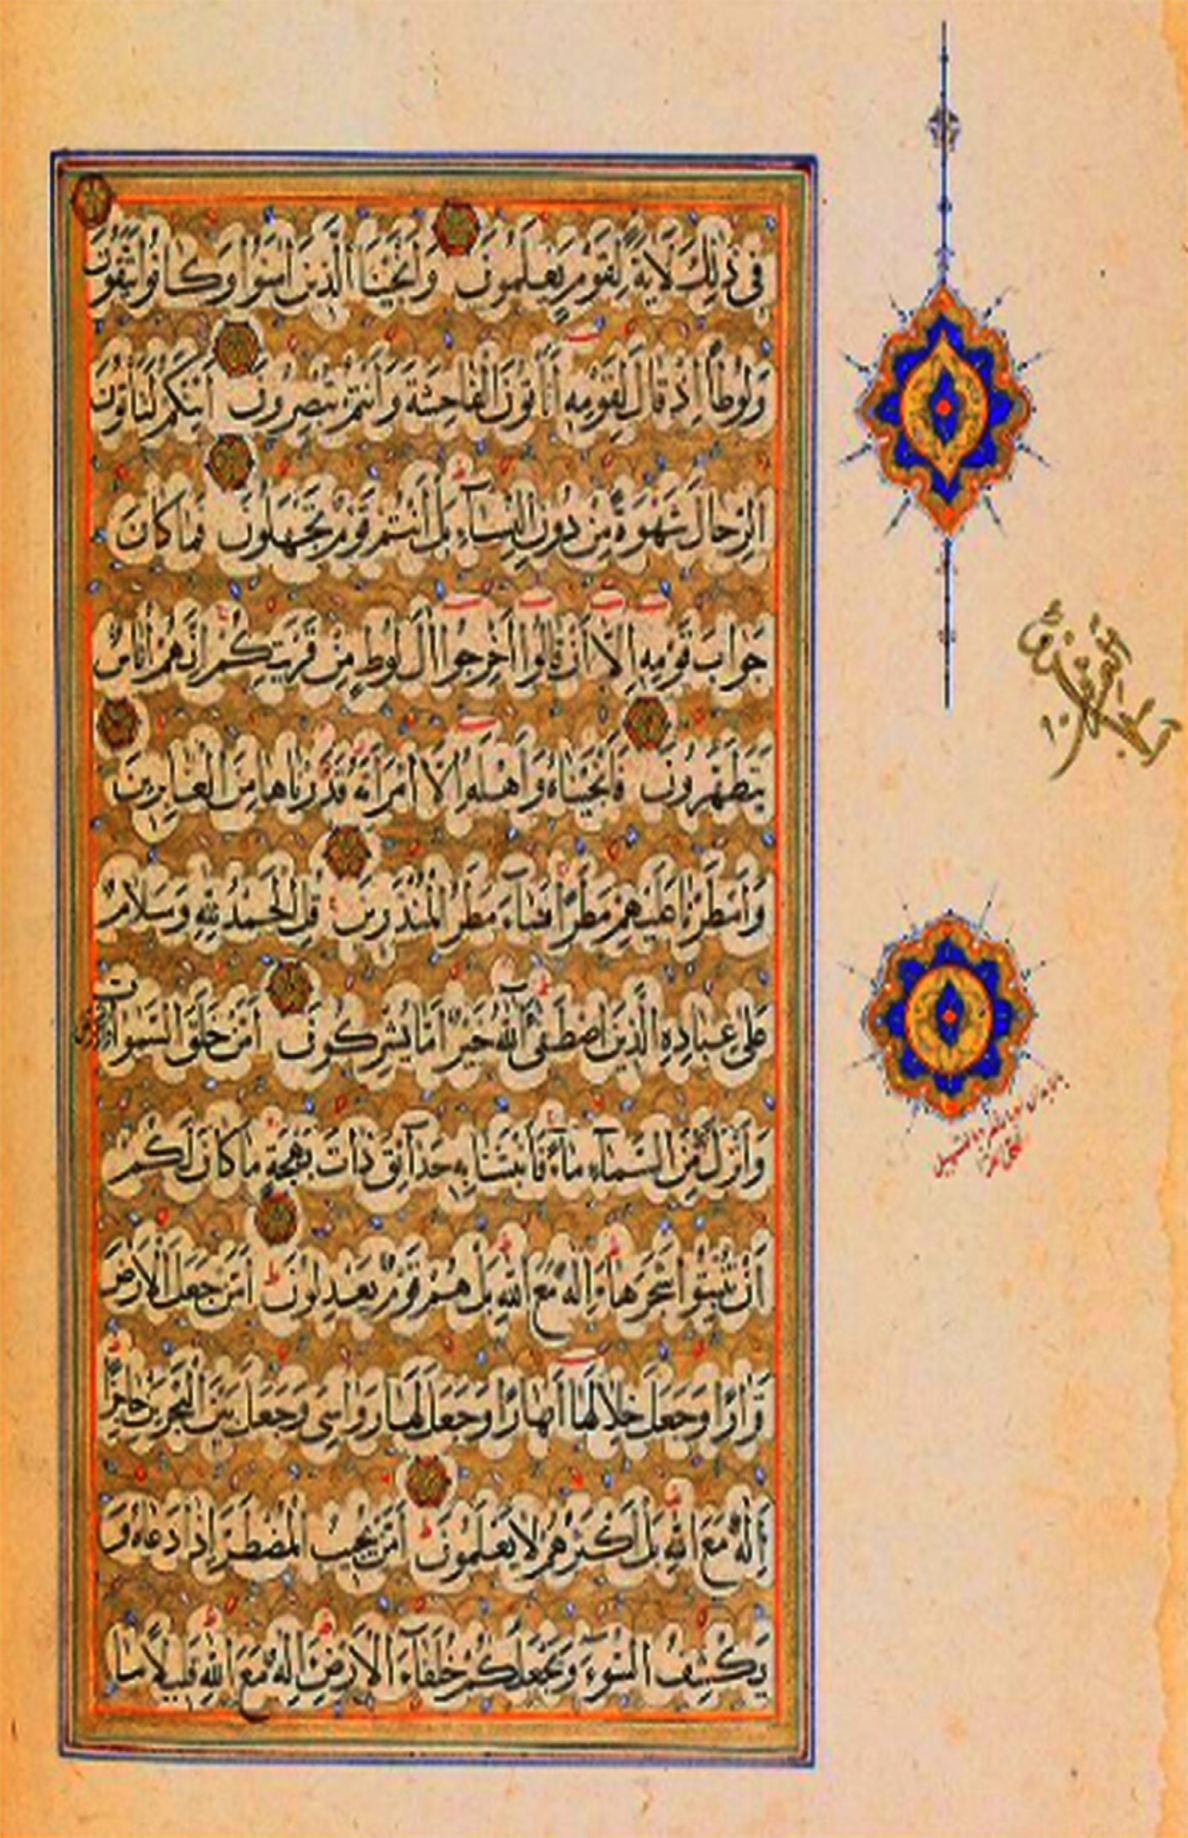 فِي ذٰلِكَ لَاٰيَةً لِقَوْمٍ يَعْلَمُونَ وَاَنْجَيْنَا الَّذِينَ اٰمَنُوا وَكَانُوا يَتَّقُونَ
وَلُوطًا اِذْ قَالَ لِقَوْمِهِ اَتَاْتُونَ الْفَاحِشَةَ وَاَنْتُمْ تُبْصِرُونَ اَئِنَّكُمْ لَتَاْتُونَ
الرِّجَالَ شَهْوَةً مِنْ دُونِ النِّسَآءِ بَلْ اَنْتُمْ قَوْمٌ تَجْهَلُونَ فَمَا كَانَ
جَوَابَ قَوْمِهِ اِلَّا اَنْ قَالُوا اَخْرِجُوا اٰلَ لُوطٍ مِنْ قَرْيَتِكُمْ اِنَّهُمْ اُنَاسٌ
يَتَطَهَّرُونَ فَاَنْجَيْنَاهُ وَاَهْلَهُ اِلَّا امْرَاَتَهُ قَدَّرْنَاهَا مِنَ الْغَابِرِينَ
وَاَمْطَرْنَا عَلَيْهِمْ مَطَرًا فَسَآءَ مَطَرُ الْمُنْذَرِينَ قُلِ الْحَمْدُ لِلّٰهِ وَسَلَامٌ
عَلٰى عِبَادِهِ الَّذِينَ اصْطَفٰى آللّٰهُ خَيْرٌ اَمَّا يُشْرِكُونَ اَمَّنْ خَلَقَ السَّمٰوَاتِ وَالْاَرْضَ
وَاَنْزَلَ لَكُمْ مِنَ السَّمَآءِ مَآءً فَاَنْبَتْنَا بِهِ حَدَآئِقَ ذَاتَ بَهْجَةٍ مَا كَانَ لَكُمْ
اَنْ تُنْبِتُوا شَجَرَهَا ءَاِلٰهٌ مَعَ اللّٰهِ بَلْ هُمْ قَوْمٌ يَعْدِلُونَ اَمَّنْ جَعَلَ الْاَرْضَ
قَرَارًا وَجَعَلَ خِلَالَهَا اَنْهَارًا وَجَعَلَ لَهَا رَوَاسِيَ وَجَعَلَ بَيْنَ الْبَحْرَيْنِ حَاجِزًا
ءَاِلٰهٌ مَعَ اللّٰهِ بَلْ اَكْثَرُهُمْ لَا يَعْلَمُونَ اَمَّنْ يُجِيبُ الْمُضْطَرَّ اِذَا دَعَاهُ وَ
يَكْشِفُ السُّوٓءَ وَيَجْعَلُكُمْ خُلَفَآءَ الْاَرْضِ ءَاِلٰهٌ مَعَ اللّٰهِ قَلِيلًا مَا